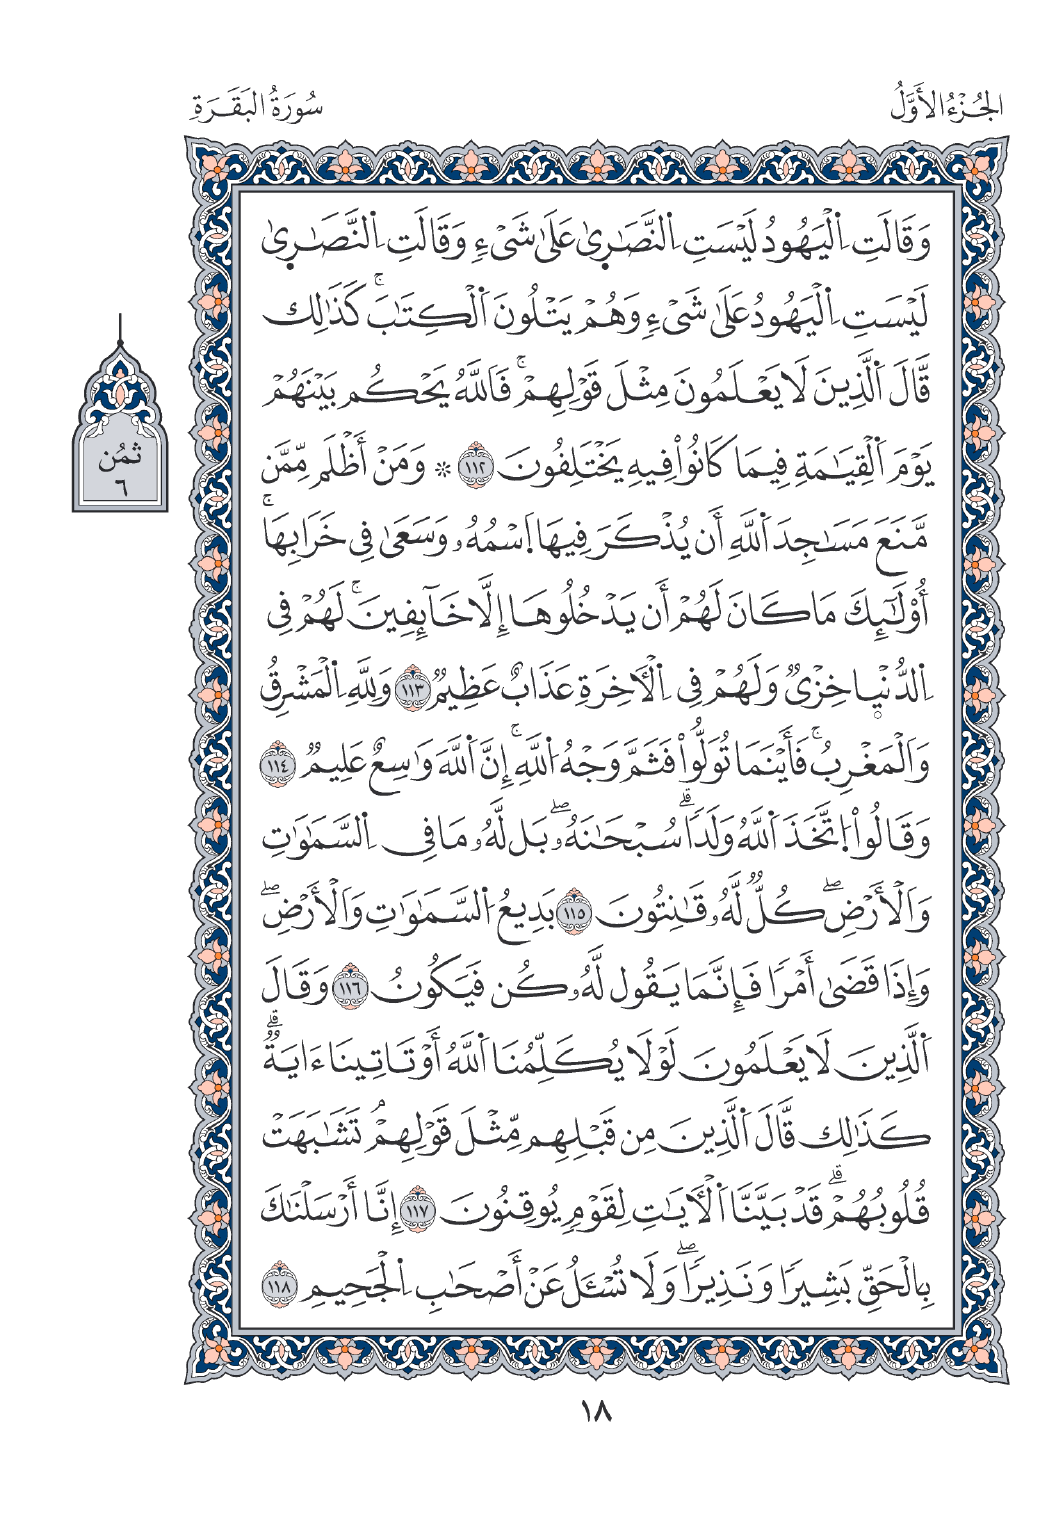 الجُزْءُ الأَوَّلُ
سُورَةُ البَقَرَةِ
وَقَالَتِ اِ۬لْيَهُودُ لَيْسَتِ اِ۬لنَّصَٰر۪يٰ عَلَىٰ شَےْءٖ وَقَالَتِ اِ۬لنَّصَٰر۪يٰ
لَيْسَتِ اِ۬لْيَهُودُ عَلَىٰ شَےْءٖ وَهُمْ يَتْلُونَ اَ۬لْكِتَٰبَۚ كَذَٰلِك
قَّالَ اَ۬لذِينَ لَا يَعْلَمُونَ مِثْلَ قَوْلِهِمْۚ فَاللَّهُ يَحْكُم بَيْنَهُمْ
يَوْمَ اَ۬لْقِيَٰمَةِ فِيمَا كَانُواْ فِيهِ يَخْتَلِفُونَ ١١٢ ۞ وَمَنْ أَظْلَم مِّمَّن
مَّنَعَ مَسَٰجِدَ اَ۬للَّهِ أَن يُذْكَرَ فِيهَا اَ۪سْمُهُۥ وَسَعَىٰ فِي خَرَابِهَاۚ
أُوْلَٰٓئِكَ مَا كَانَ لَهُمْ أَن يَدْخُلُوهَا إِلَّا خَآئِفِينَۚ لَهُمْ فِي
اِ۬لدُّنْي۪ا خِزْيٞ وَلَهُمْ فِي اِ۬لْأٓخِرَةِ عَذَابٌ عَظِيمٞ ١١٣ وَلِلَّهِ اِ۬لْمَشْرِقُ
وَالْمَغْرِبُۚ فَأَيْنَمَا تُوَلُّواْ فَثَمَّ وَجْهُ اُ۬للَّهِۚ إِنَّ اَ۬للَّهَ وَٰسِعٌ عَلِيمٞ ١١٤
وَقَالُواْ اُ۪تَّخَذَ اَ۬للَّهُ وَلَدٗاۗ سُبْحَٰنَهُۥۖ بَل لَّهُۥ مَا فِي اِ۬لسَّمَٰوَٰتِ
وَالْأَرْضِۖ كُلّٞ لَّهُۥ قَٰنِتُونَ ١١٥ بَدِيعُ اُ۬لسَّمَٰوَٰتِ وَالْأَرْضِۖ
وَإِذَا قَضَىٰ أَمْرٗا فَإِنَّمَا يَقُول لَّهُۥ كُن فَيَكُونُ ١١٦ وَقَالَ
اَ۬لذِينَ لَا يَعْلَمُونَ لَوْلَا يُكَلِّمُنَا اَ۬للَّهُ أَوْ تَاتِينَا ءَايَةٞۗ
كَذَٰلِك قَّالَ اَ۬لذِينَ مِن قَبْلِهِم مِّثْلَ قَوْلِهِمْۘ تَشَٰبَهَتْ
قُلُوبُهُمْۗ قَدْ بَيَّنَّا اَ۬لْأٓيَٰتِ لِقَوْمٖ يُوقِنُونَ ١١٧ إِنَّا أَرْسَلْنَٰكَ
بِالْحَقِّ بَشِيرٗا وَنَذِيرٗاۖ وَلَا تُسْـَٔلُ عَنْ أَصْحَٰبِ اِ۬لْجَحِيمِ ١١٨
ثُمُن
٦
١٨